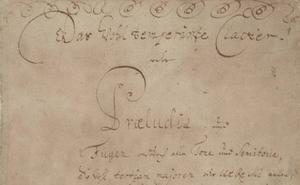 Das Wohl temperirte Clavier.
oder
Præludia, und
Fugen durch alle Tone und Semitonia,
so wohl tertiam majorem